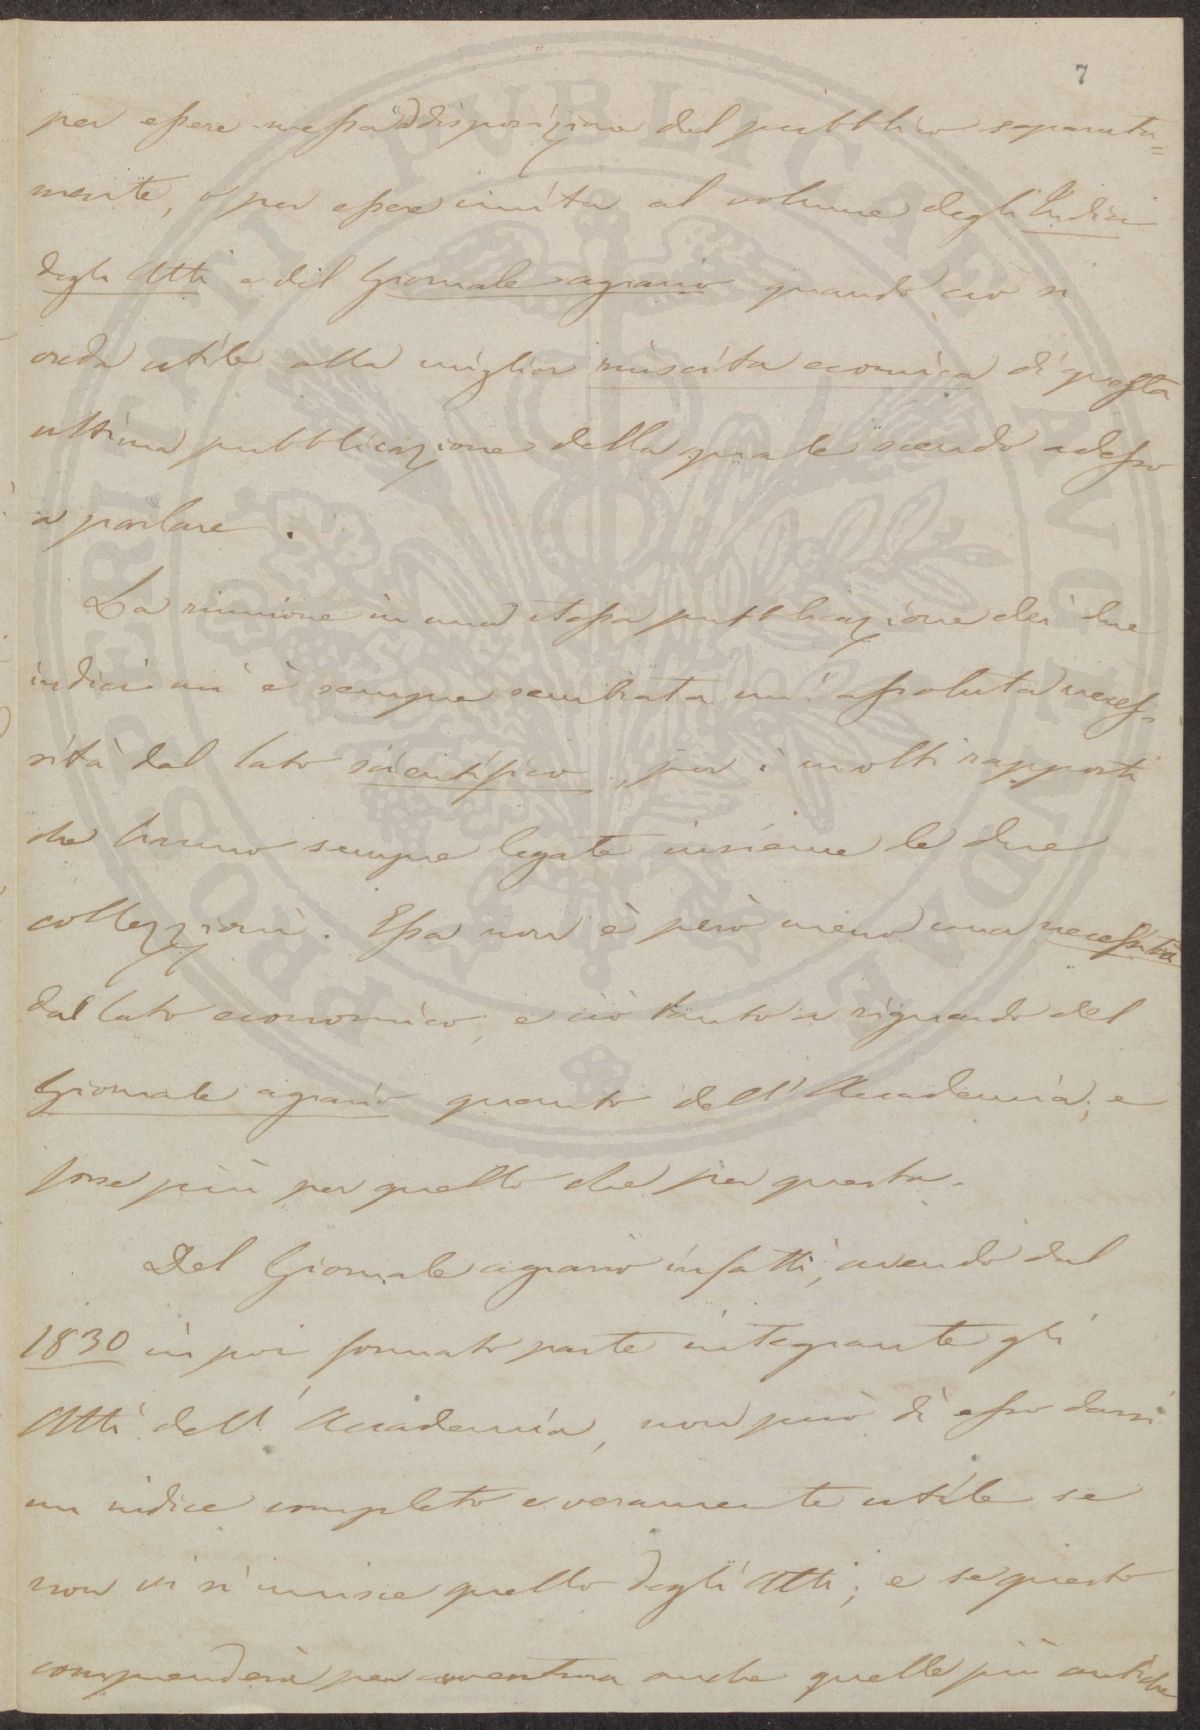 7
per essere messa a disposizione del pubblico separata=
mente, o per essere unita al volume degli Indici
degli Atti e del Giornale agrario quando ciò si
creda utile alla miglior riuscita economica di questa
ultima pubblicazione della quale scendo adesso
a parlare.
La riunione in una stessa pubblicazione dei due
indici mi è sempre sembrata un' assoluta neces-
sità dal lato scientifico, per i molti rapporti
che hanno sempre legate insieme le due
collezioni. Essa non è però meno una necessità
dal lato economico, e ciò tanto a riguardo del
Giornale agrario quanto dell' Accademia; e
forse più per quello che per questa.
Del Giornale agrario infatti, avendo dal
1830 in poi formato parte integrante gli
Atti dell' Accademia, non può di esso darsi
un indice completo e veramente utile se
non vi si unisce quello degli Atti; e se questo
comprenderà per avventura anche quelle più antiche
PROSPERITATI PUBLICAE AUGENDAE